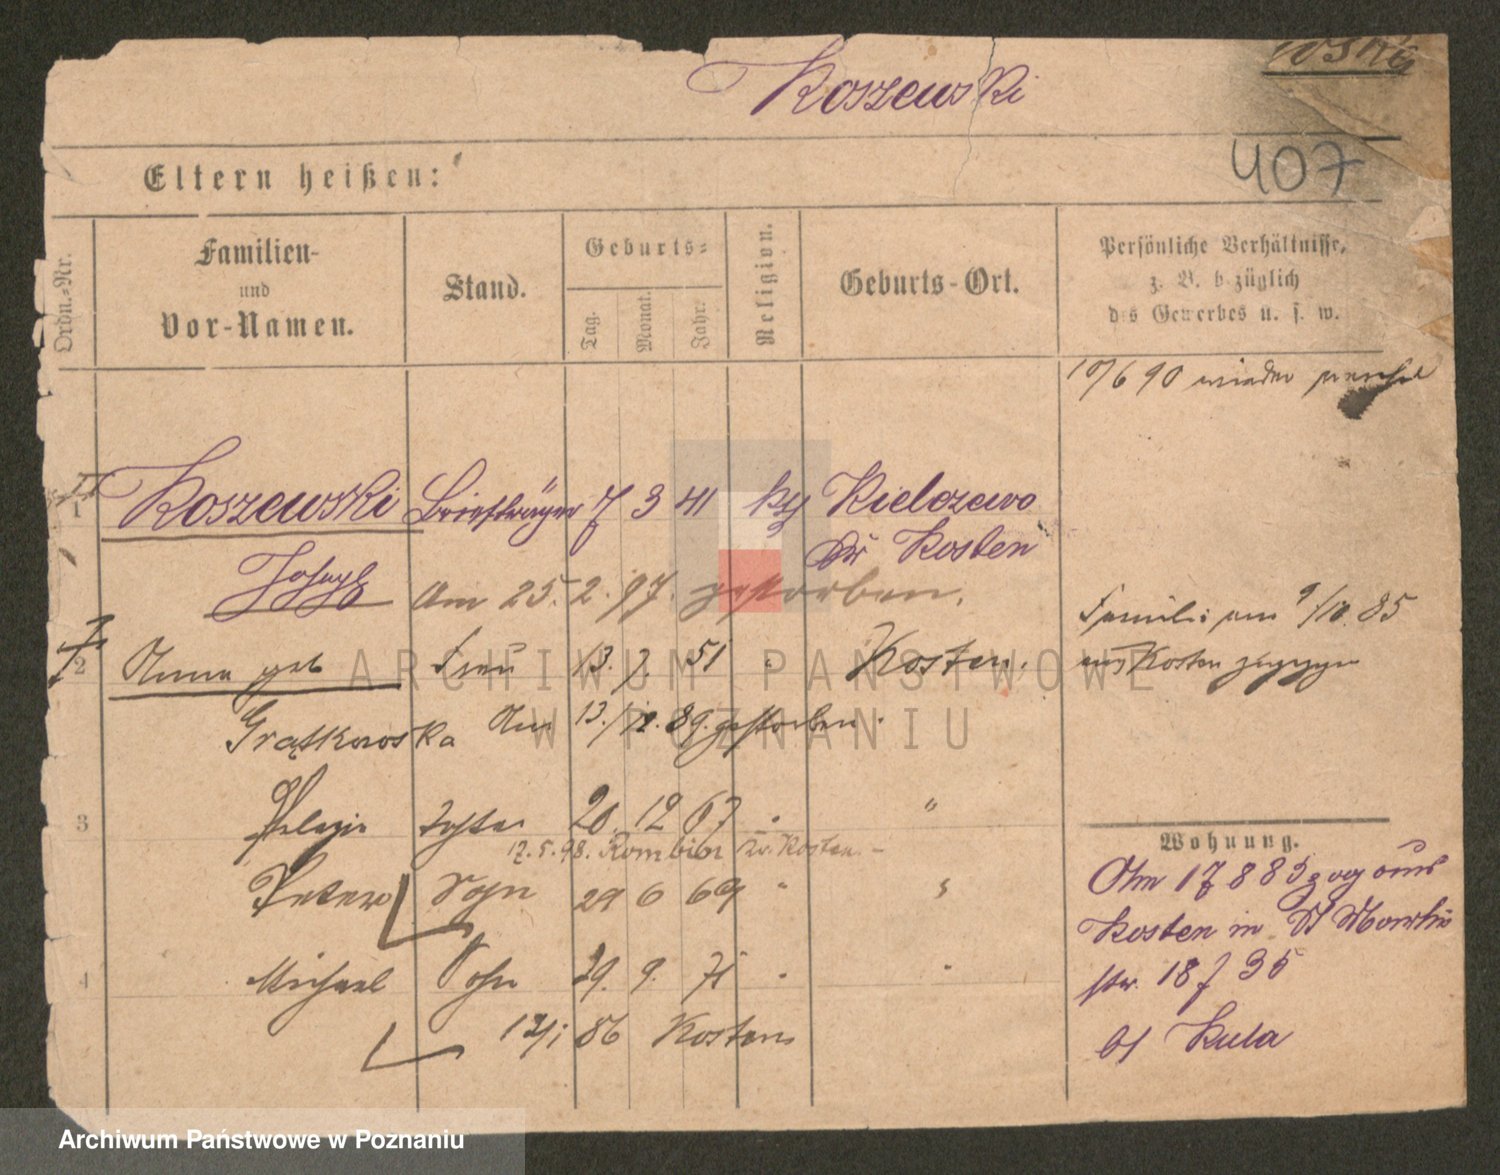 Koszewski
407
Eltern heißen:
Ordn.-Nr.
Familien-
und
Vor-Namen.
Stand.
Geburts-
Tag.
Monat.
Jahr.
Religion.
Geburts-Ort.
Persönliche Verhältnisse,
z. B. bezüglich
des Gewerbes u. s. w.
10/6 90 wieder
1 Koszewski Briefträger 7 3 41 kth Kielczewo
Kr Kosten
Joseph
Am 25. 2. 97. gestorben.
Familie am 9/10. 85
2 Anna geb Frau 13. 7. 51 " Kosten.
aus Kosten zugezogen
Grątkowska Am 13./12. 89. gestorben.
3 Pelagia Tochter 20. 12 67 " "
17. 5. 98. Kr. Kosten. -
Peter Sohn 29 6 69 " "
4 Michael Sohn 29. 9. 71 " "
86 Kosten
Wohnung.
Am 17 8 85 zog aus
Kosten in St Martin
str. 18 f 35
bei Kula
ARCHIWUM PAŃSTWOWE
W POZNANIU
Archiwum Państwowe w Poznaniu